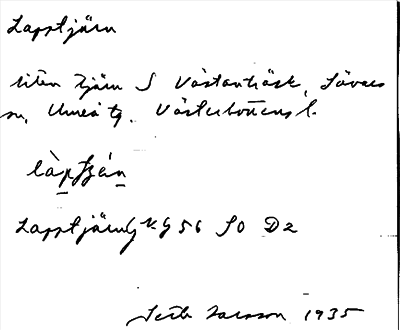 Lapptjärn
liten tjärn S Västanträsk, Lövångers
sn, Umeå tg. Västerbottens l.
làptjǽn
Lapptjärn G 56 SO D2
Larsson 1935